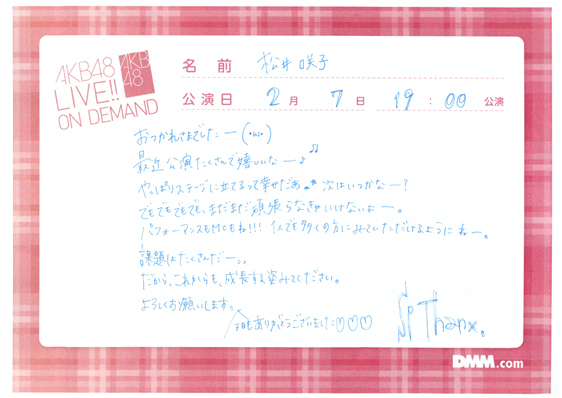 AKB48
LIVE!!
ON DEMAND
AKB
48
名 前 松井咲子
公演日 2月 7日 19:00 公演
おつかれさまでしたー(・ω・)
最近公演たくさんで嬉しいなー♪♫
やっぱりステージに立てるって幸せだぁ 次はいつかなー?
でもでもでもでも、まだまだ頑張らなきゃいけないよー。
パフォーマンスもMCもね!!! 1人でも多くの方にみていただけるようにねー。
課題はたくさんだーっ。
だから、これからも、成長する姿みてください。
よろしくお願いします。
今日もありがとうございました♡♡♡
Sp Thanx。
DMM.com